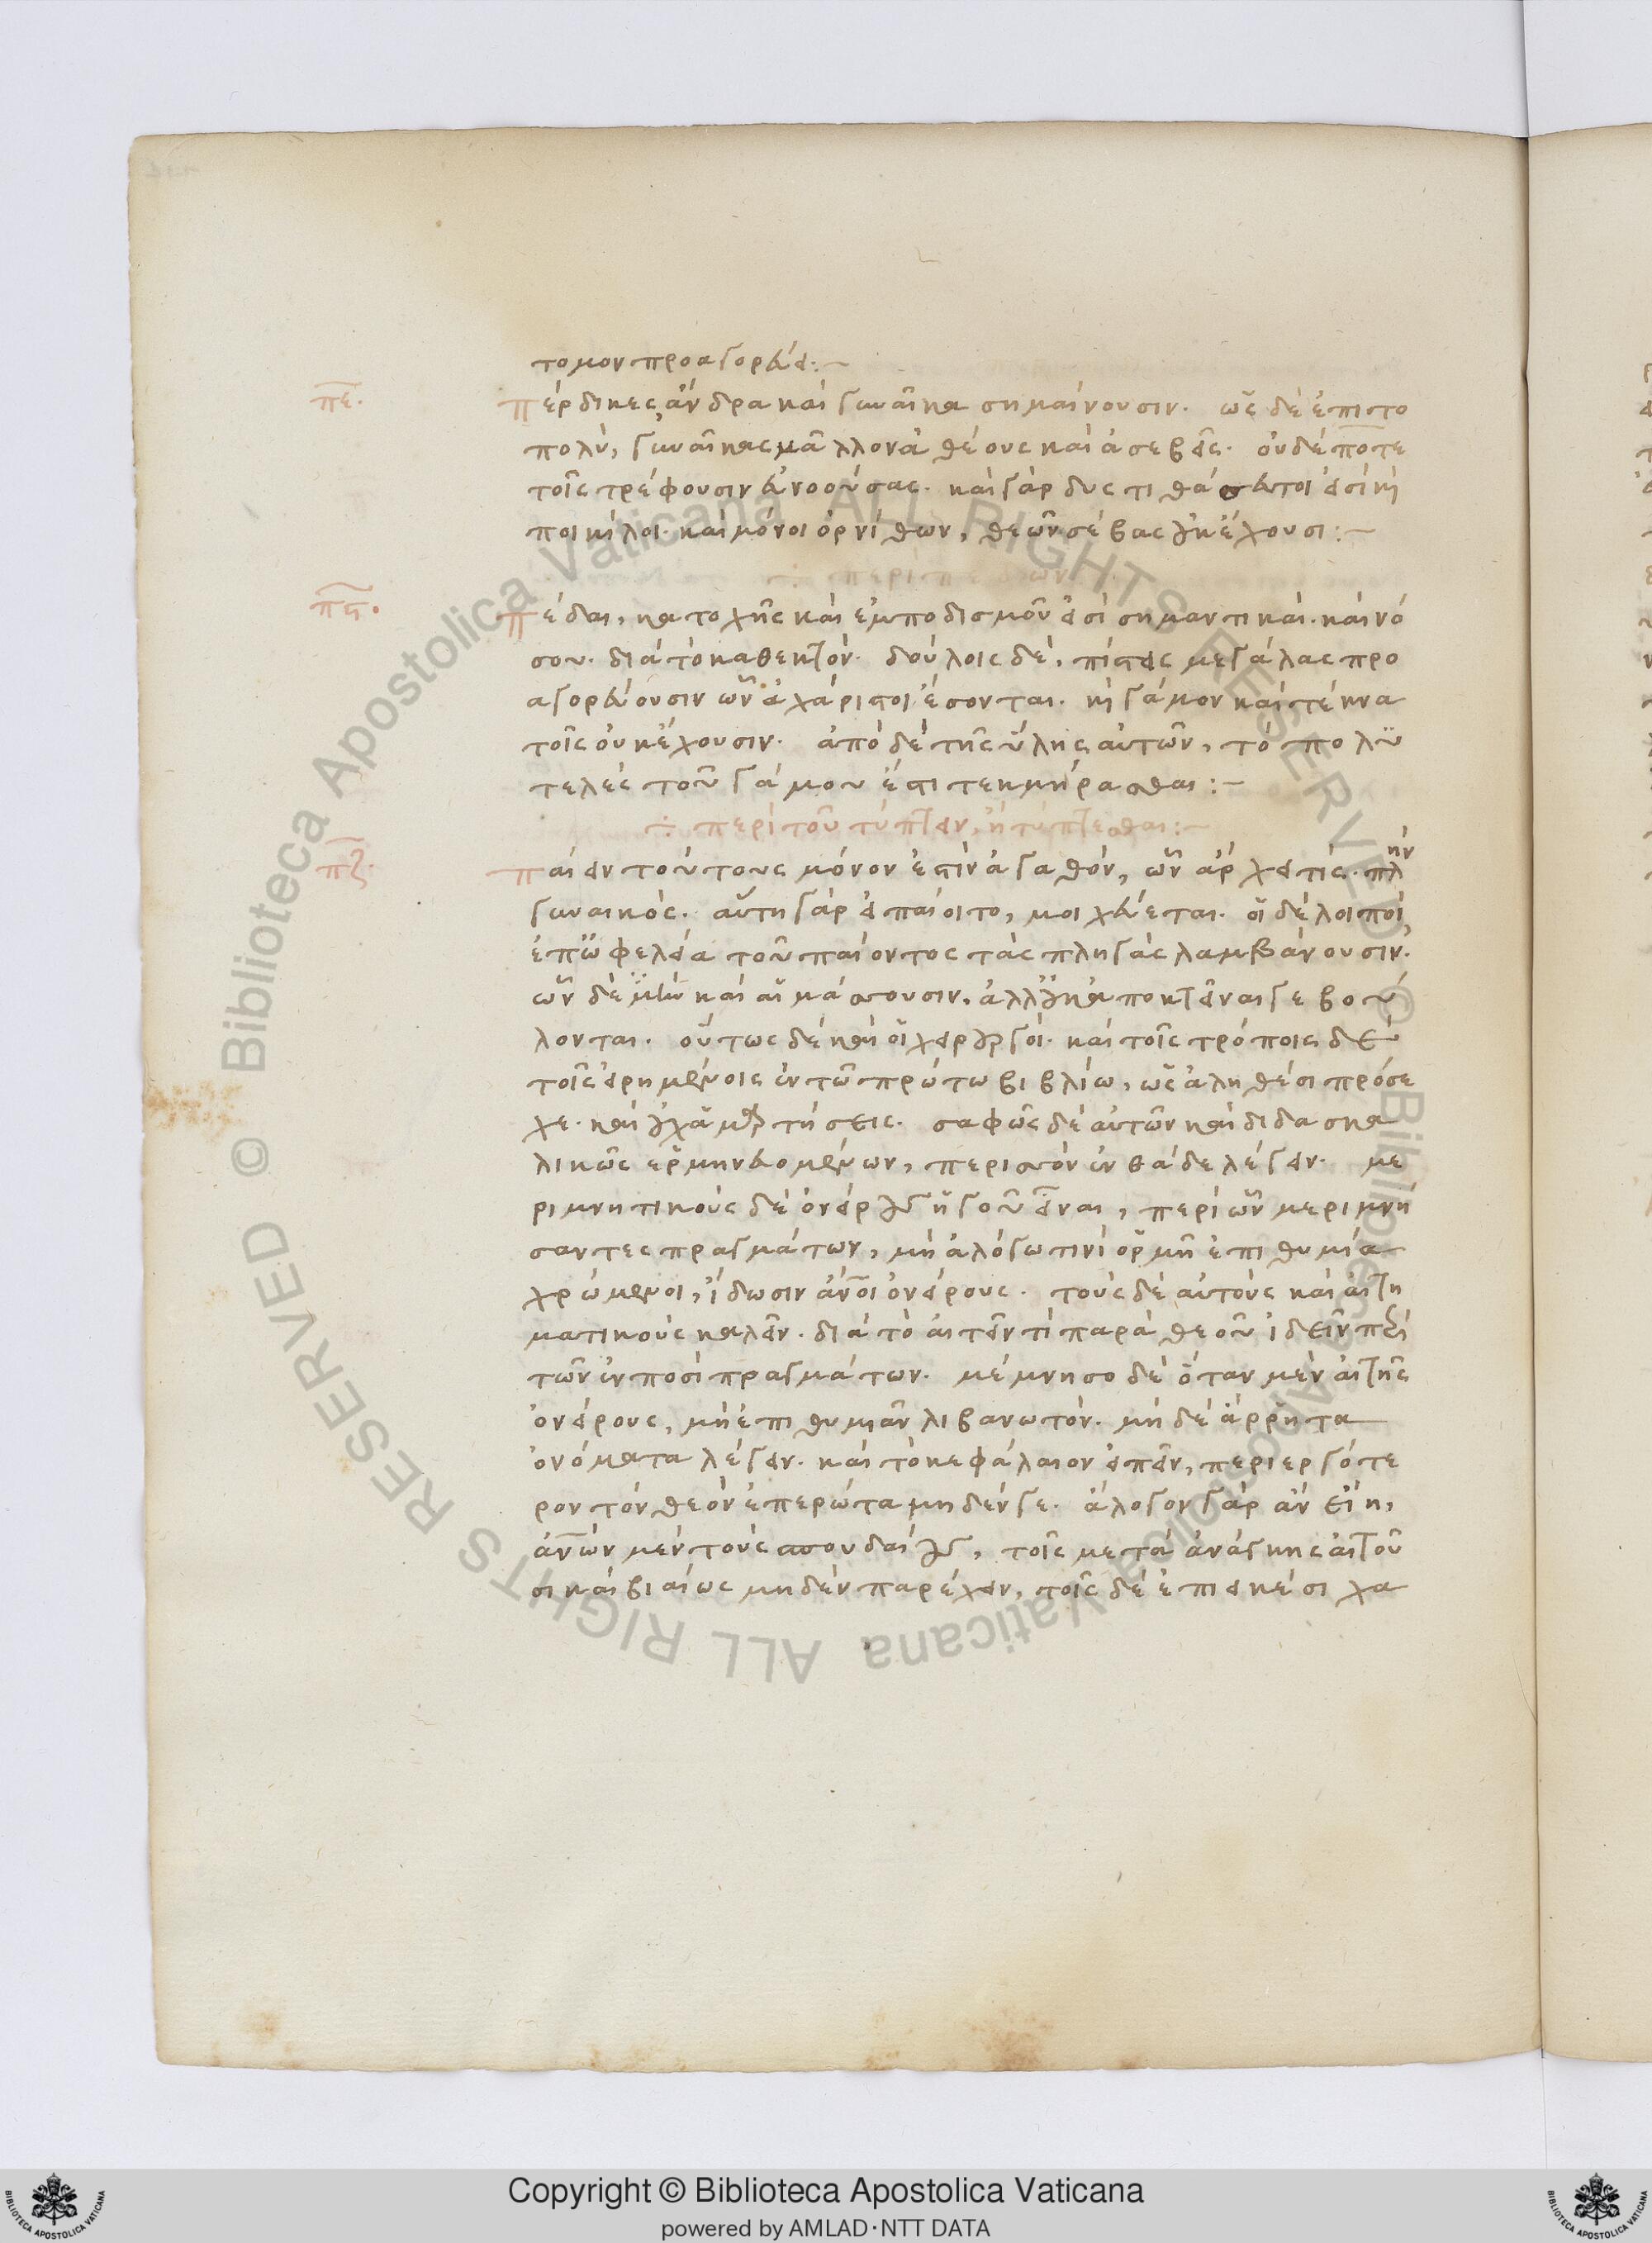 τομον προαγορεύει:~
πε. Πέρδικες ἄνδρα καὶ γυναῖκα σημαίνουσιν. ὡς δὲ ἐπιτο
πολὺ, γυναῖκας μᾶλλον ἀθέους καὶ ἀσεβεῖς. οὐδέποτε
τοῖς τρέφουσιν εὐνοούσας. καὶ γὰρ δυστιθάσευτοι εἰσὶ κὶ
ποικίλοι. καὶ μόνοι ὀρνίθων, θεῶν σέβας οὐκ ἔχουσι:~
περὶ πεδῶν
πϛ. Πέδαι, κατοχῆς καὶ ἐμποδισμοῦ εἰσὶ σημαντικαὶ. καὶ νό
σου. διὰ τὸ καθεκτὸν. δούλοις δὲ, πίστεις μεγάλας προ
αγορεύουσιν ὧν εὐχάριστοι ἔσονται. κὶ γάμον καὶ τέκνα
τοῖς οὐκ ἔχουσιν. ἀπὸ δὲ τῆς ὕλης αὐτῶν, τὸ πολυ
τελὲς τοῦ γάμου ἔστι τεκμήρασθαι:~
περὶ τοῦ τύπτειν, ἢ τύπτεσθαι:~
πζ. Παίειν τούτους μόνον ἐστὶν ἀγαθόν, ὧν ἄρχει τίς. πλὴν
γυναικὸς. αὕτη γὰρ εἰ παίοιτο, μοιχεύεται. οἱ δὲ λοιποὶ
ἐπωφελεία τοῦ παίοντος τὰς πληγὰς λαμβάνουσιν.
ὧν δὲ μὴ καὶ αἱμάσσουσιν, ἀλλ' οὐκ ἀποκτεῖναι γε βού
λονται. οὕτως δὲ καὶ οἱ χειρουργοὶ. καὶ τοῖς τρόποις δὲ
τοῖς εἰρημένοις ἐν τῶ πρώτω βιβλίω, ὡς ἀληθέσι πρόσε
χε. καὶ οὐχ ἁμαρτήσεις. σαφῶς δὲ αὐτῶν καὶ διδασκα
λικῶς ἑρμηνευομένων, περισσὸν ἐνθάδε λέγειν. με
ριμνητικοὺς δὲ ὀνείρους ἡγοῦ εἶναι, περὶ ὧν μεριμνή
σαντες πραγμάτων, μὴ ἀλόγω τινὶ ὁρμῆ ἐπιθυμία
χρώμενοι, ἴδωσιν ἄνοι ὀνείρους. τοὺς δὲ αὐτοὺς καὶ αἰτη
ματικοὺς καλεῖν. διὰ τὸ αἰτεῖν τὶ παρὰ θεοῦ ἰδεῖν περὶ
τῶν ἐν ποσὶ πραγμάτων. μέμνησο δὲ ὅταν μὲν αἰτῆς
ὀνείρους, μὴ ἐπιθυμιᾶν λιβανωτὸν. μὴ δὲ ἄρρητα
ὀνόματα λέγειν. καὶ τὸ κεφάλαιον εἰπεῖν, περιεργότε
ρον τὸν θεὸν ἐπερώτα μηδέν γε. ἄλογον γὰρ ἂν εἴη,
ἀνῶν μὲν τοὺς σπουδαίους, τοῖς μετὰ ἀνάγκης αἰτοῦ
σι καὶ βιαίως μηδὲν παρέχειν, τοῖς δὲ ἐπιεικέσι χα
© Biblioteca Apostolica Vaticana ALL RIGHTS RESERVED © Biblioteca Apostolica Vaticana ALL RIGHTS RESERVED
Copyright © Biblioteca Apostolica Vaticana
powered by AMLAD·NTT DATA
BIBLIOTECA APOSTOLICA VATICANA
BIBLIOTECA APOSTOLICA VATICANA